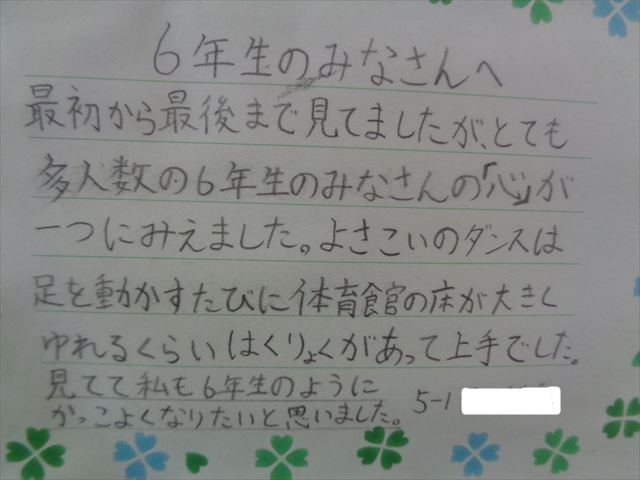 6年生のみなさんへ
最初から最後まで見てましたが、とても
多人数の6年生のみなさんの「心」が
一つにみえました。よさこいのダンスは
足を動かすたびに体育館の床が大きく
ゆれるくらいはくりょくがあって上手でした。
見てて私も6年生のように
かっこよくなりたいと思いました。 5-1